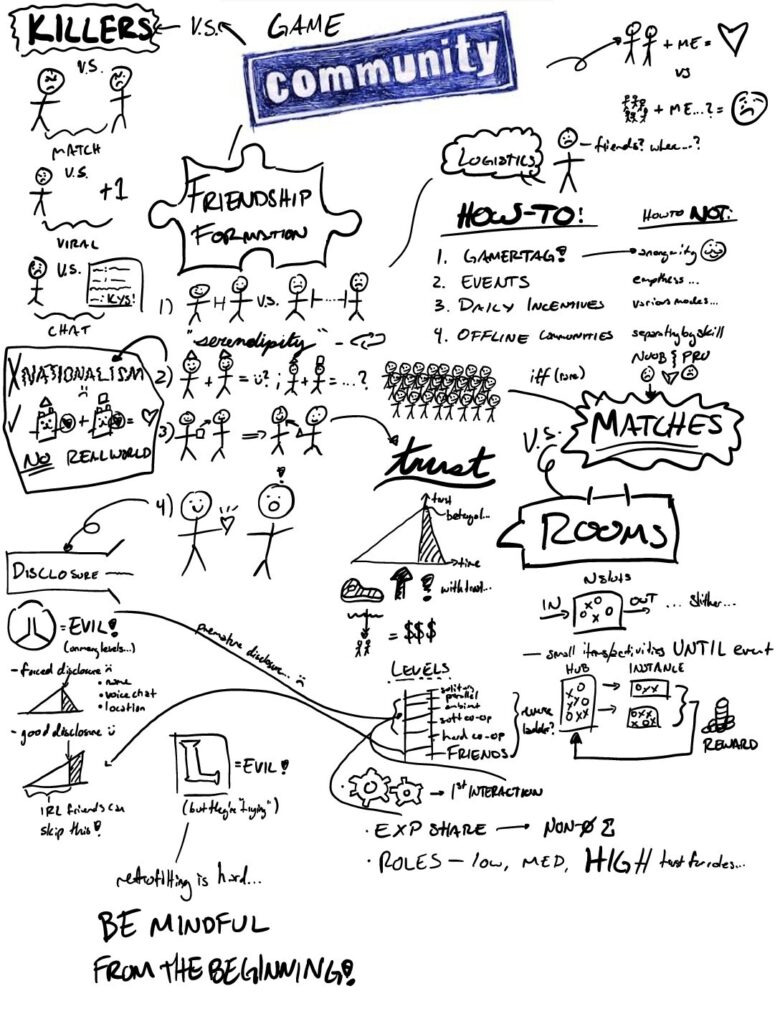 KILLERS
V.S.
GAME
community
V.S.
MATCH
V.S.
+1
VIRAL
V.S.
KYS!
CHAT
+ ME =
VS
+ ME...? =
LOGISTICS
friends? where...?
FRIENDSHIP
FORMATION
HOW-TO:
HOW TO NOT:
1. GAMERTAG!
anonymity
2. EVENTS
emptiness...
3. DAILY INCENTIVES
various modes...
4. OFFLINE COMMUNITIES
separating by skill
NOOB & PRO
1)
V.S.
"serendipity"
X NATIONALISM
✓
+
=
NO REAL WORLD
2)
+ = ü? ; + = ...?
3)
4)
iff (rare)
MATCHES
V.S.
ROOMS
trust
trust
betrayal...
time
with trust...
= $$$
DISCLOSURE
= EVIL!
(on many levels...)
- forced disclosure
• name
• voice chat
• location
- good disclosure ü
IRL friends can
skip this!
premature disclosure...
L = EVIL!
(but they're "trying")
retrofitting is hard...
BE MINDFUL
FROM THE BEGINNING!
N slots
IN
OUT
... slither...
small items/activities UNTIL event
HUB
INSTANCE
REWARD
LEVELS
solitary
parallel
ambient
soft co-op
hard co-op
FRIENDS
reverse
ladder?
1st INTERACTION
• EXP SHARE → NON-Ø Σ
• ROLES – low, MED, HIGH trust for roles...